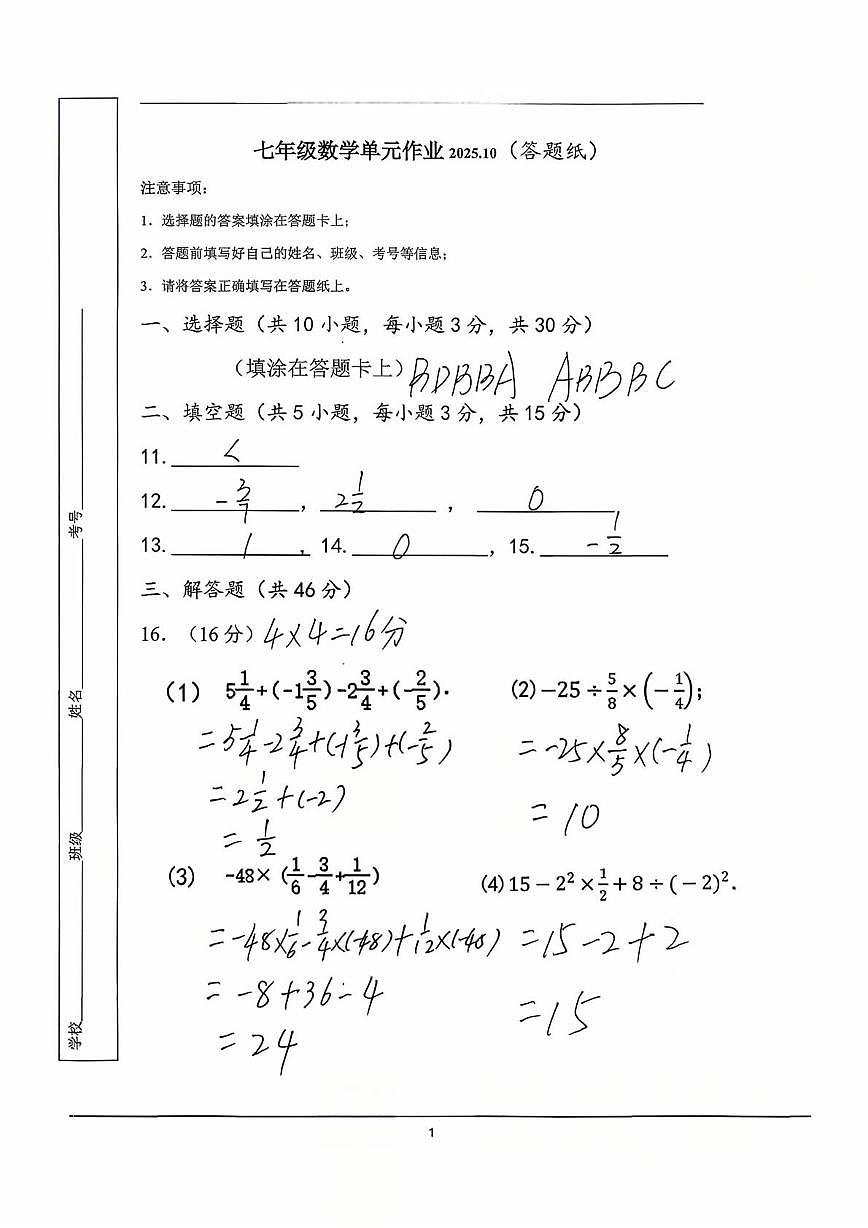 七年级数学单元作业 2025.10（答题纸）
注意事项：
1. 选择题的答案填涂在答题卡上；
2. 答题前填写好自己的姓名、班级、考号等信息；
3. 请将答案正确填写在答题纸上。
一、选择题（共 10 小题，每小题 3 分，共 30 分）
（填涂在答题卡上）BDBBA ABBBC
二、填空题（共 5 小题，每小题 3 分，共 15 分）
11. <
12. -3/7 ， 2 1/2 ， 0
13. 1 ，14. 0 ，15. -1/2
三、解答题（共 46 分）
16. （16 分）4×4=16分
(1) 5 1/4+(-1 3/5)-2 3/4+(-2/5).
=5 1/4-2 3/4+(-1 3/5)+(-2/5)
=2 1/2+(-2)
=1/2
(2) -25÷5/8×(-1/4);
=-25×8/5×(-1/4)
=10
(3) -48×(1/6-3/4+1/12)
=-48×1/6-3/4×(-48)+1/12×(-48)
=-8+36-4
=24
(4) 15-2²×1/2+8÷(-2)².
=15-2+2
=15
学校 班级 姓名 考号
1